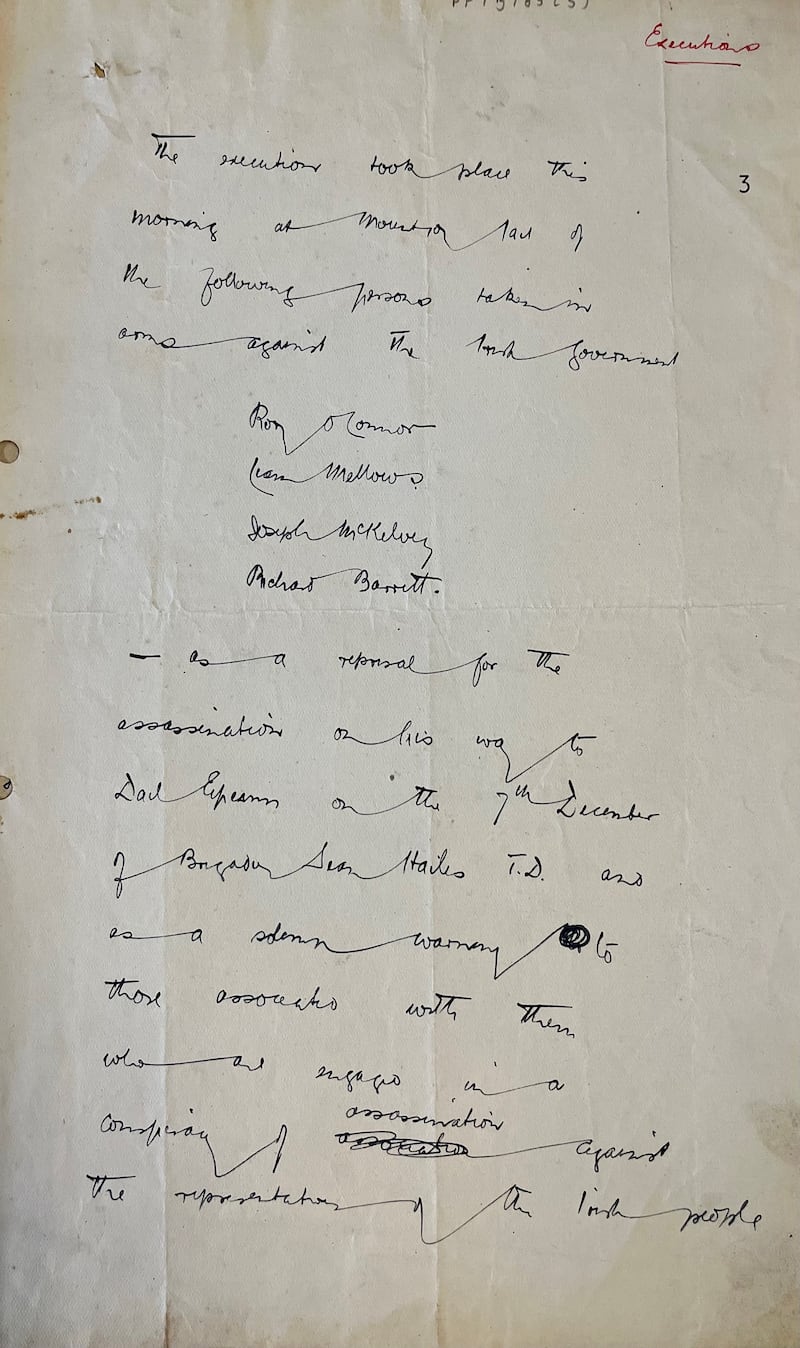 Executions
3
The executions took place this
morning at Mountjoy Jail of
the following persons taken in
arms against the Irish Government
Rory O'Connor
Liam Mellows
Joseph McKelvey
Richard Barrett.
— as a reprisal for the
assassination on his way to
Dail Eireann on the 7th December
of Brigadier Sean Hales T.D. and
as a solemn warning to
those associated with them
who are engaged in a
assassination
conspiracy of against
the representatives of the Irish people